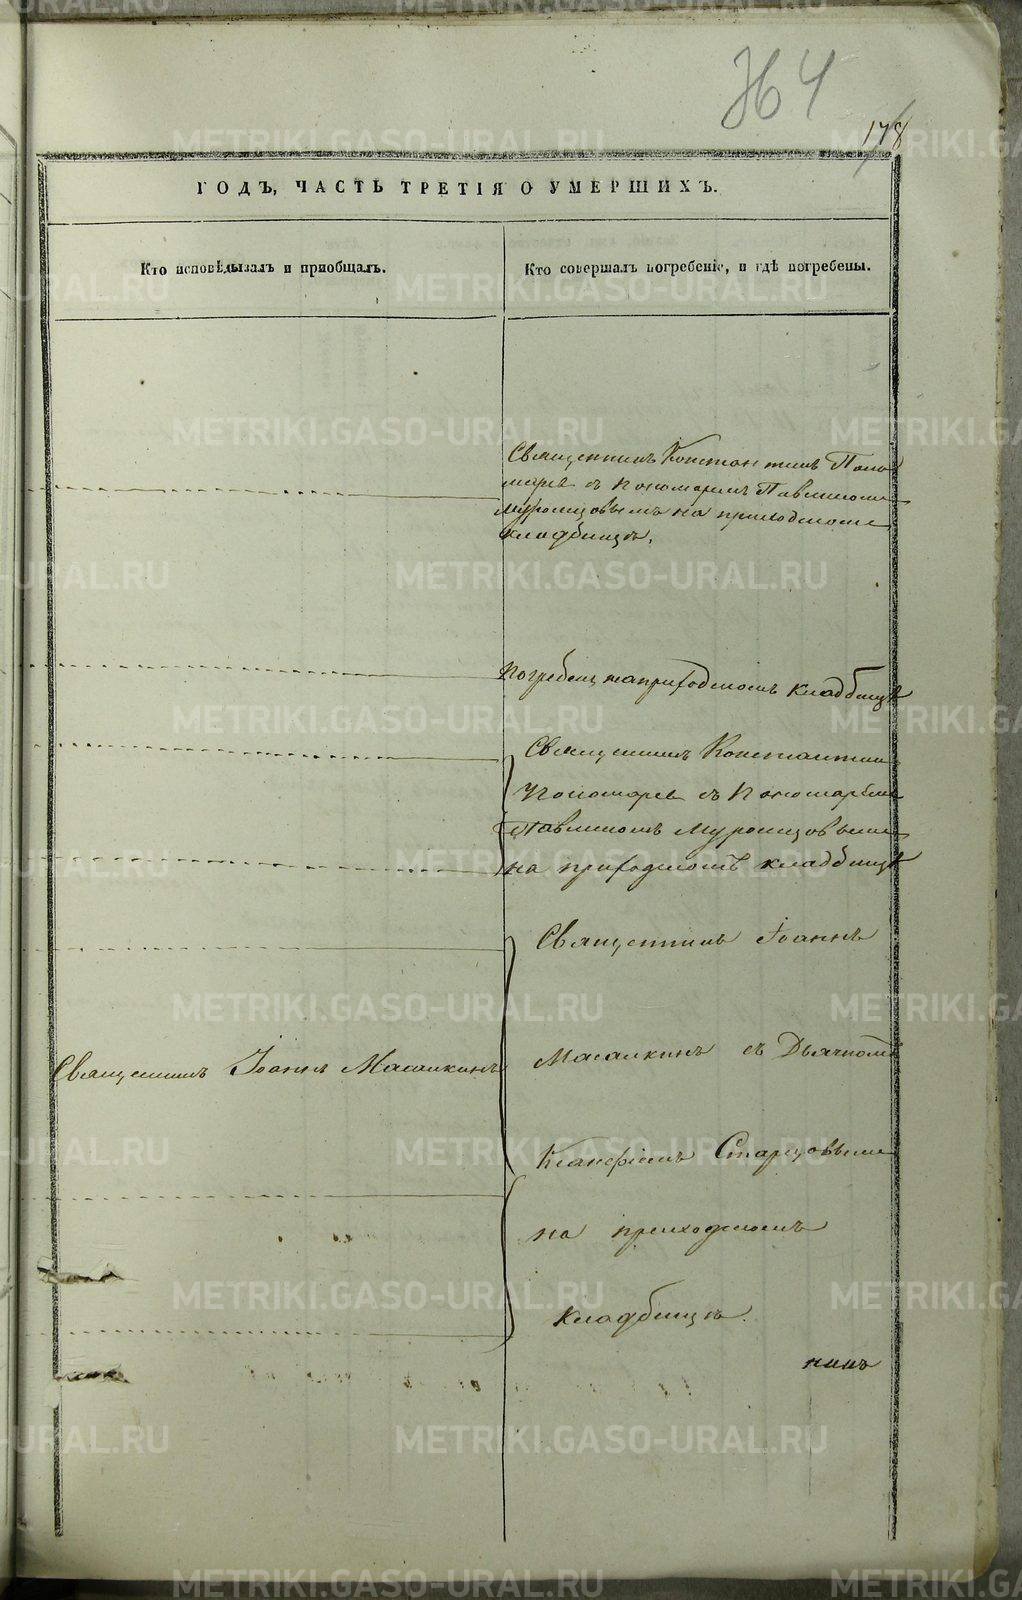 364
178
ГОДЪ, ЧАСТЬ ТРЕТІЯ О УМЕРШИХЪ.
Кто исповѣдывалъ и пріобщалъ.
Кто совершалъ погребеніе, и гдѣ погребены.
Священникъ Константинъ Поно
марев съ Пономаремъ Павлином
Муромцовымъ на приходском
кладбищѣ.
Погребен на приходскомъ кладбищѣ
Священникъ Константин
Пономарев съ Пономарем
Павлиномъ Муромцовым
на приходскомъ кладбищѣ
Священникъ Іоаннъ
Священникъ Іоаннъ Масалкинъ
Масалкинъ съ Дьячкомъ
Ксанфіемъ Старцовым
на приходскомъ
кладбищѣ.
METRIKI.GASO-URAL.RU